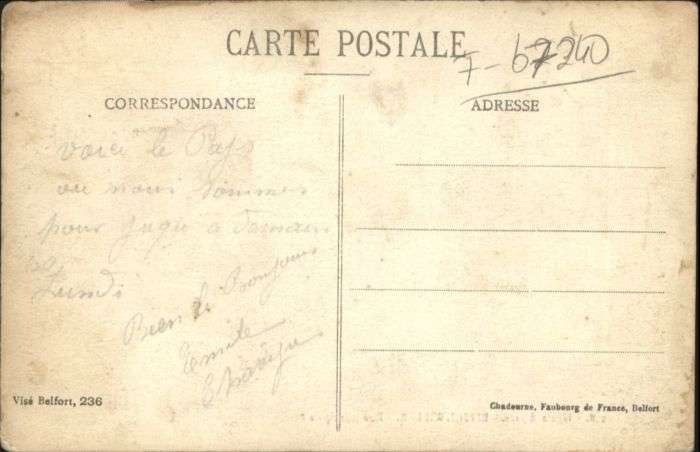 CARTE POSTALE
7-67240
CORRESPONDANCE
ADRESSE
voici le Pays
ou nous sommes
pour juqu a demain
Lundi
Bien le Bonjour
Emile
Visé Belfort, 236
Chadourne, Faubourg de France, Belfort